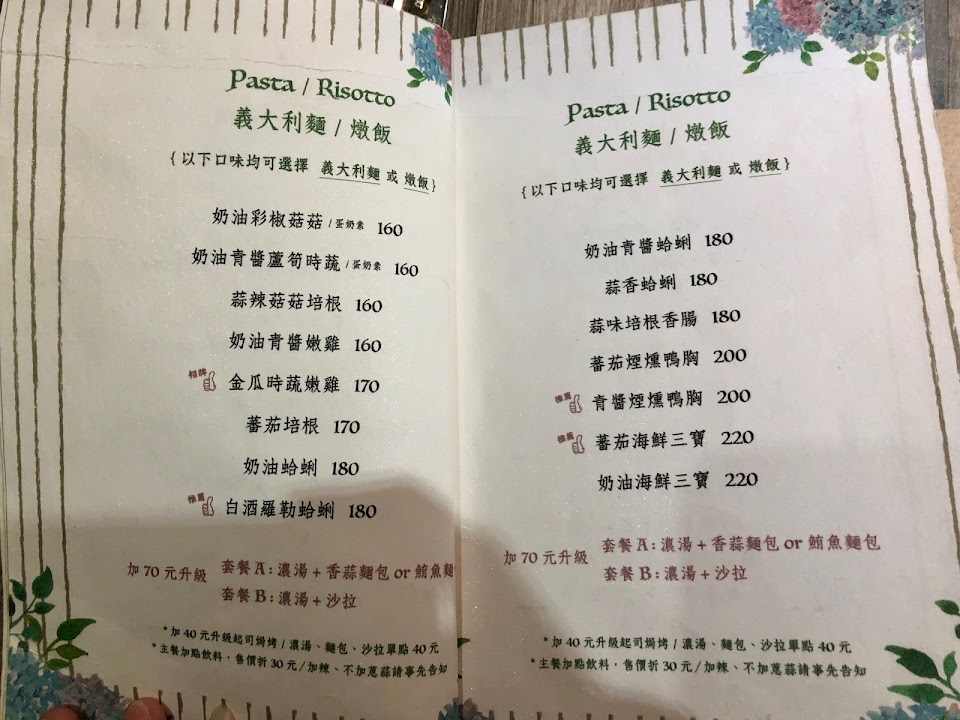 Pasta / Risotto
義大利麵 / 燉飯
{ 以下口味均可選擇 義大利麵 或 燉飯 }
奶油彩椒菇菇 / 蛋奶素 160
奶油青醬蘆筍時蔬 / 蛋奶素 160
蒜辣菇菇培根 160
奶油青醬嫩雞 160
招牌 金瓜時蔬嫩雞 170
蕃茄培根 170
奶油蛤蜊 180
推薦 白酒羅勒蛤蜊 180
加 70 元升級
套餐 A : 濃湯 + 香蒜麵包 or 鮪魚麵
套餐 B : 濃湯 + 沙拉
* 加 40 元升級起司焗烤 / 濃湯、麵包、沙拉單點 40 元
* 主餐加點飲料，售價折 30 元 / 加辣、不加蔥蒜請事先告知
Pasta / Risotto
義大利麵 / 燉飯
{ 以下口味均可選擇 義大利麵 或 燉飯 }
奶油青醬蛤蜊 180
蒜香蛤蜊 180
蒜味培根香腸 180
蕃茄煙燻鴨胸 200
推薦 青醬煙燻鴨胸 200
推薦 蕃茄海鮮三寶 220
奶油海鮮三寶 220
加 70 元升級
套餐 A : 濃湯 + 香蒜麵包 or 鮪魚麵包
套餐 B : 濃湯 + 沙拉
* 加 40 元升級起司焗烤 / 濃湯、麵包、沙拉單點 40 元
* 主餐加點飲料，售價折 30 元 / 加辣、不加蔥蒜請事先告知